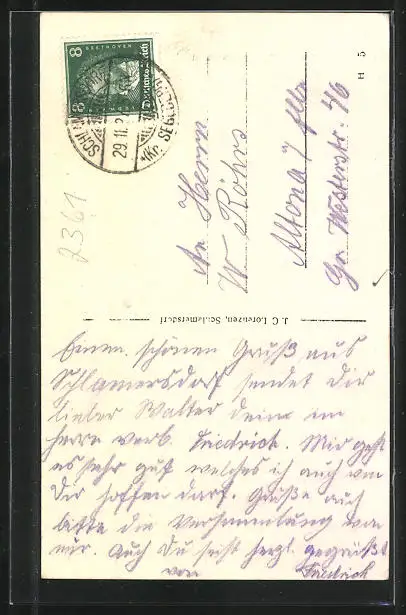 BEETHOVEN
8 8
Deutsches Reich
29.11.2
(Kr. SEGEB
2361
H 5
An Herrn
W Röhrs
Altona / Elbe
Gr Westerstr. 46
J. C. Lorenzen, Schlamersdorf
Einen schönen Gruß aus
Schlamersdorf sendet Dir
lieber Walter dein im
Herrn verb. Friedrich. Mir geht
es sehr gut welches ich auch von
Dir hoffen darf. Grüße auch
bitte die Versammlung von
mir. Auch Du seist herzl. gegrüßt
von Friedrich